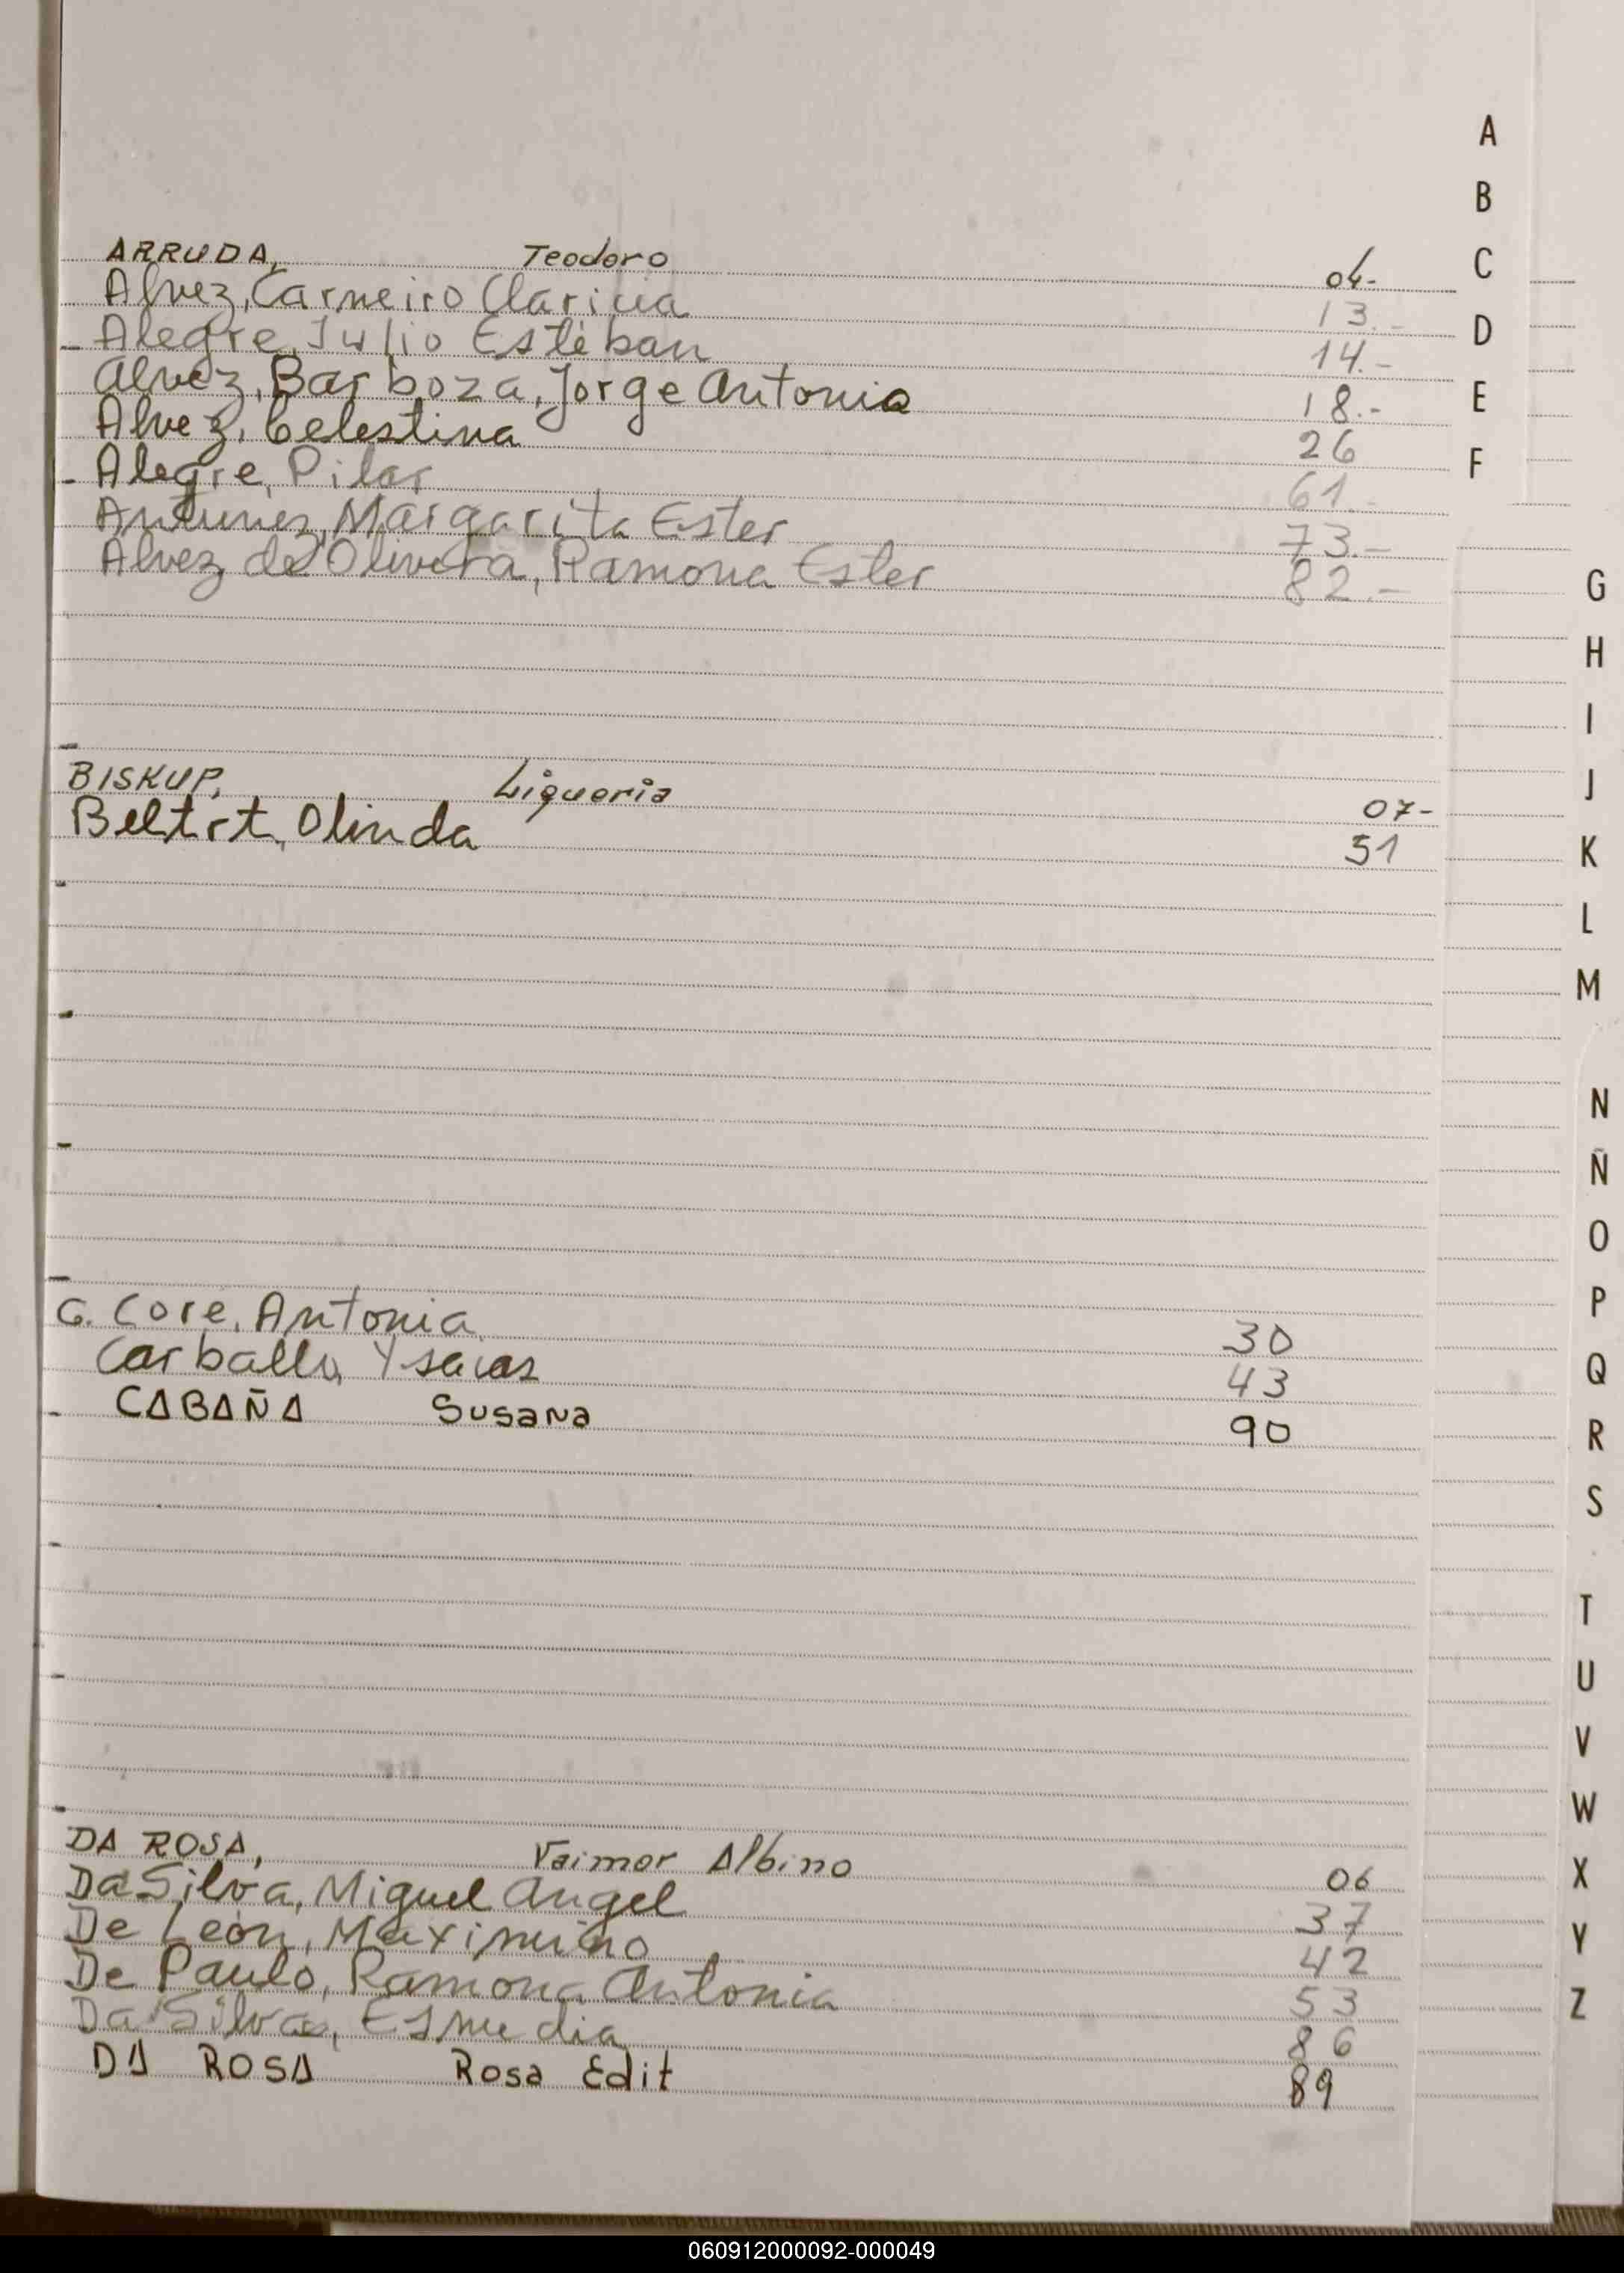 A
B
C
D
E
F
ARRUDA, Teodoro 04-
Alvez, Carneiro Claricia 13.-
- Alegre, Julio Esteban 14.-
Alvez, Barboza, Jorge Antonio 18.-
Alvez, Celestina 26
- Alegre, Pilar 61.-
Antunez, Margarita Ester 73.-
Alvez de Olivera, Ramona Ester 82.-
G
H
I
J
K
L
M
BISKUP, Ligueria 07-
Beltrt, Olinda 51
N
Ñ
O
P
Q
R
S
G. Core, Antonia 30
Carballo, Ysaias 43
CABAÑA Susana 90
T
U
V
W
X
Y
Z
DA ROSA, Vaimor Albino 06
Da Silva, Miguel Angel 37
De León, Maximino 42
De Paulo, Ramona Antonia 53
Da Silva, Esmedia 86
DA ROSA Rosa Edit 89
060912000092-000049